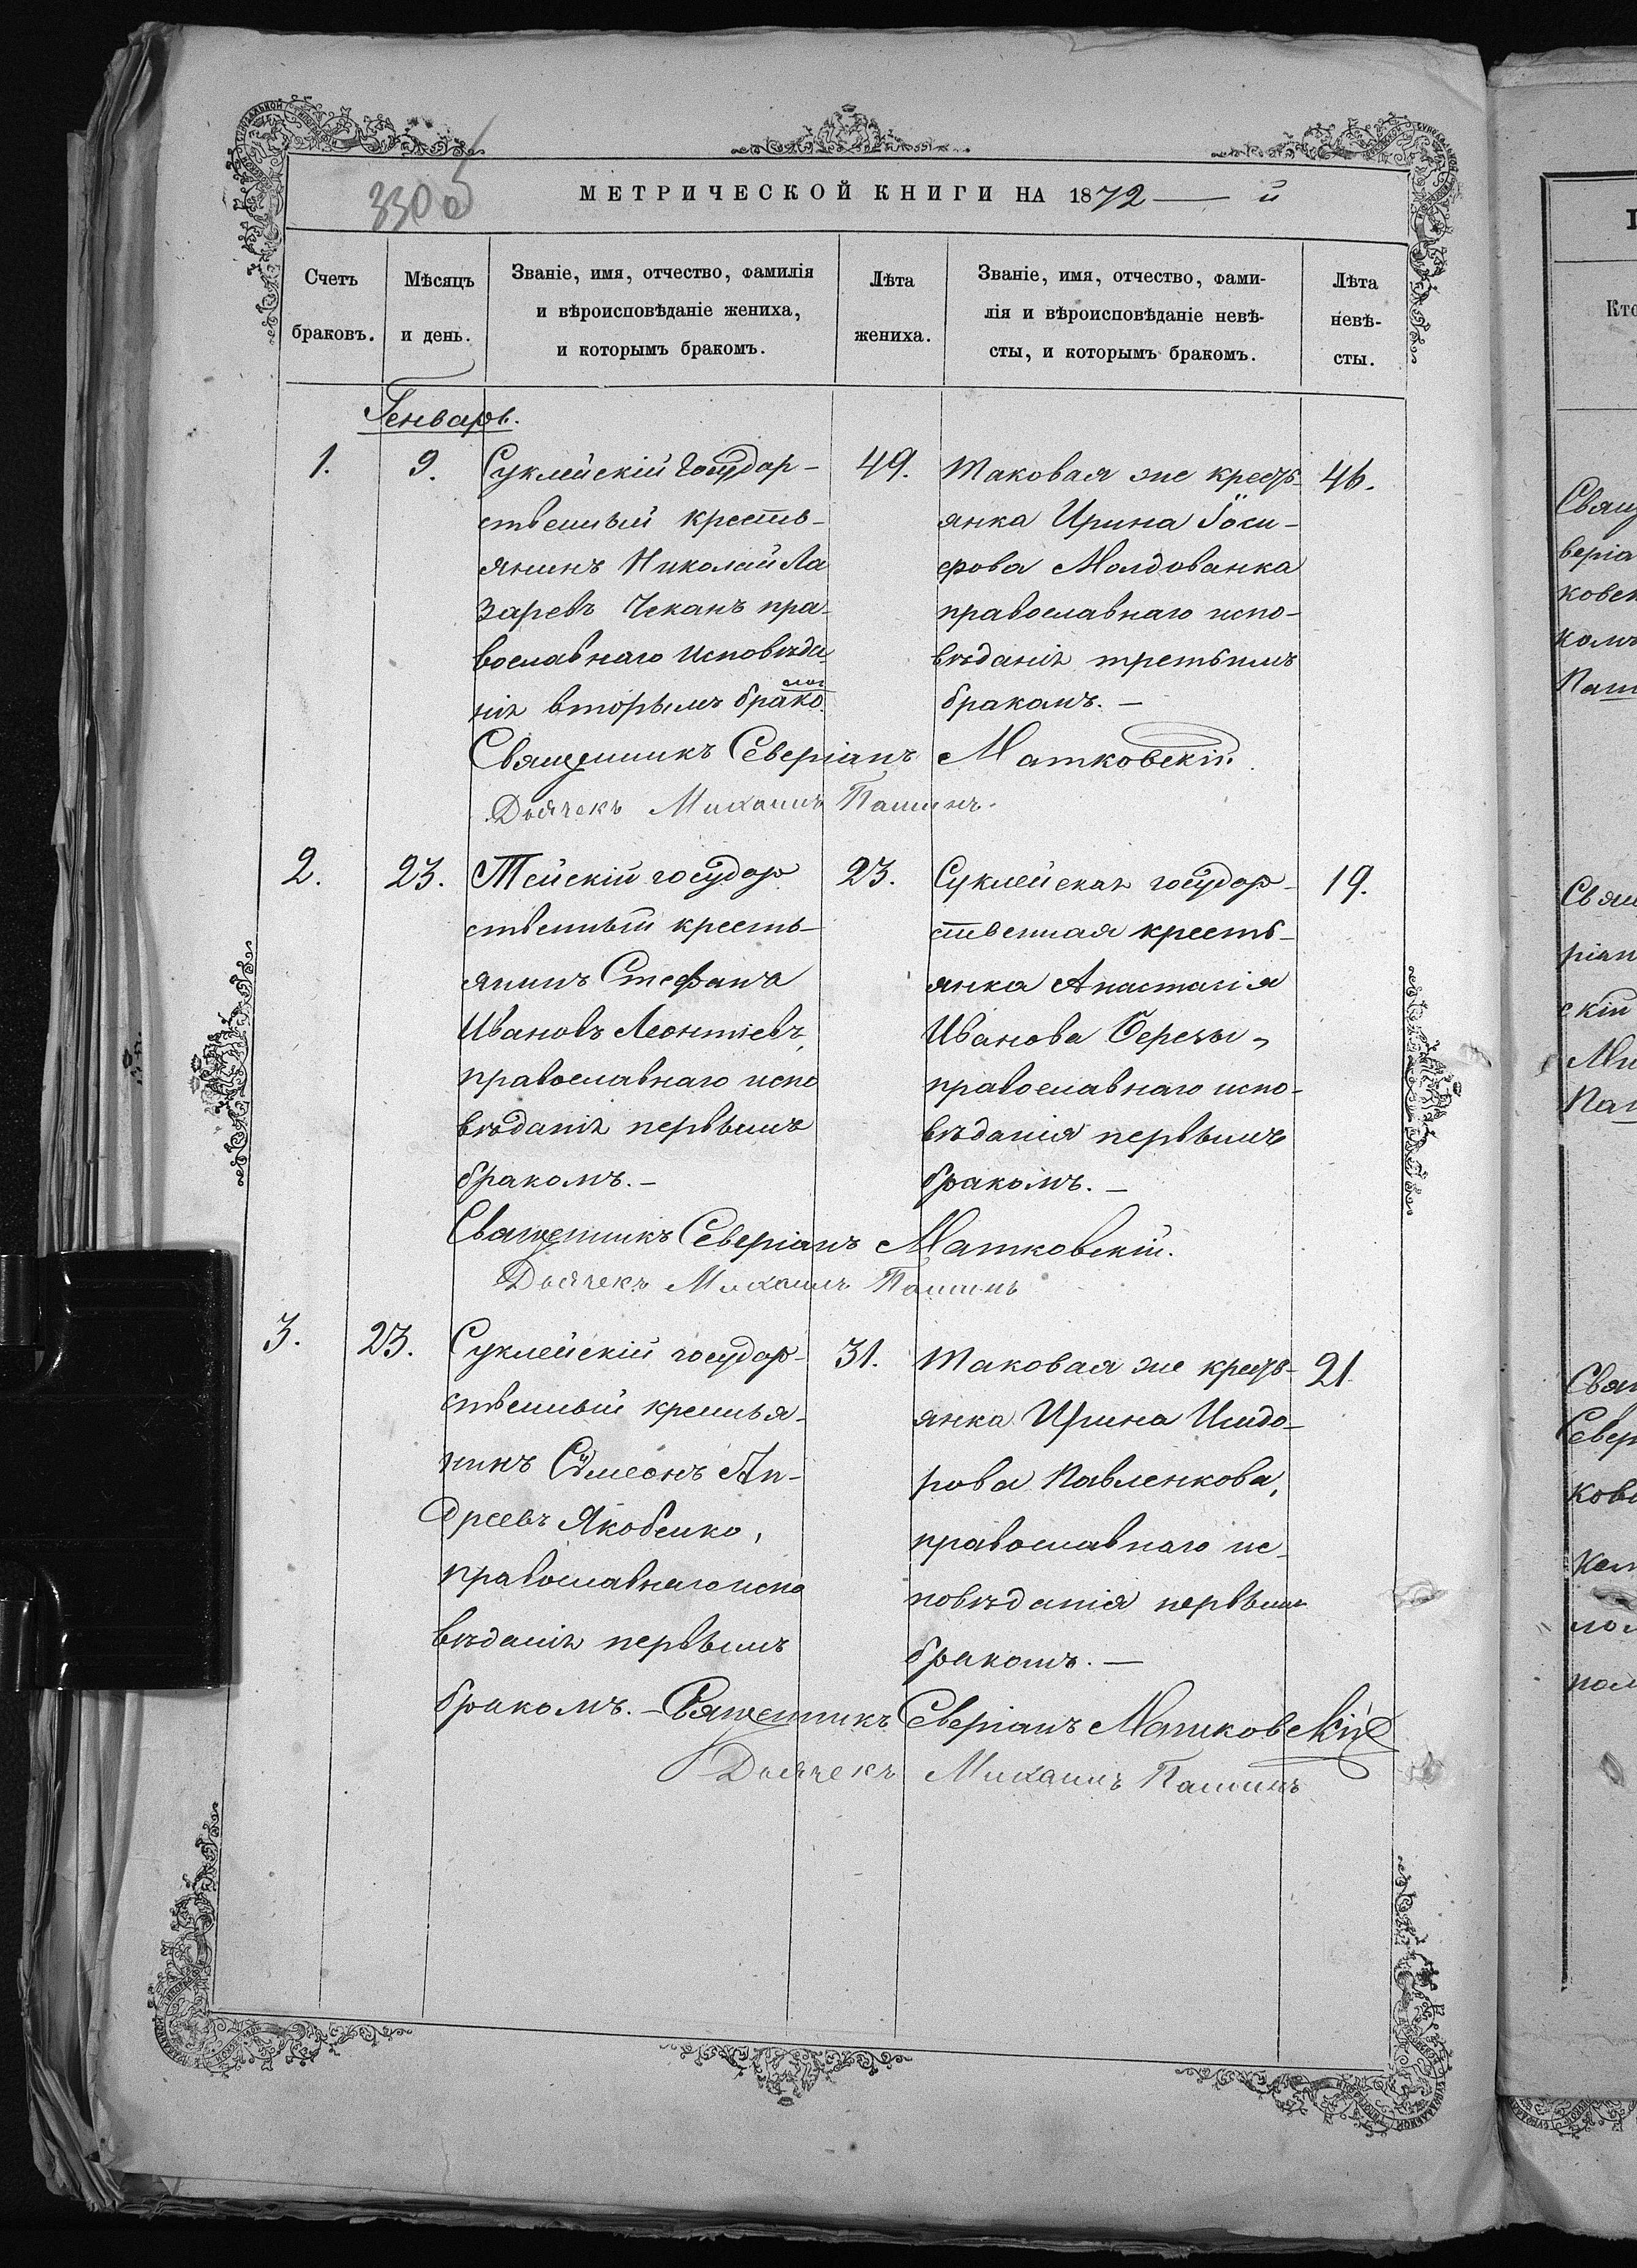 330 об
МЕТРИЧЕСКОЙ КНИГИ НА 1872 — й
Счетъ браковъ.
Мѣсяцъ и день.
Званіе, имя, отчество, фамилія
и вѣроисповѣданіе жениха,
и которымъ бракомъ.
Лѣта жениха.
Званіе, имя, отчество, фами-
лія и вѣроисповѣданіе невѣ-
сты, и которымъ бракомъ.
Лѣта невѣ-
сты.
Генварь.
1.
9.
Суклейскій государ-
ственный кресть-
янинъ Николай Ла
заревъ Чеканъ пра-
вославнаго исповѣда-
нія вторымъ бракомъ
49.
Таковая же кресть-
янка Ирина Іоси-
фова Молдованка
православнаго испо-
вѣданія третьимъ
бракомъ. —
46.
Священникъ Северіанъ Матковскій.
Дьячекъ Михаилъ Пашинъ.
2.
23.
Тейскій государ
ственный кресть-
янинъ Стефанъ
Ивановъ Леонтіевъ,
православнаго испо
вѣданія первымъ
бракомъ. —
23.
Суклейская государ-
ственная кресть-
янка Анастасія
Иванова
православнаго испо-
вѣданія первымъ
бракомъ. —
19.
Священникъ Северіанъ Матковскій.
Дьячекъ Михаилъ Пашинъ
3.
23.
Суклейскій государ-
ственный крестья-
нинъ Сѵмеонъ Ан-
дреевъ Якобенко,
православнаго испо
вѣданія первымъ
бракомъ. —
31.
Таковая же кресть-
янка Ирина Исидо-
рова Павленкова,
православнаго ис-
повѣданія первымъ
бракомъ. —
21
Священникъ Северіанъ Матковскій
Дьячекъ Михаилъ Пашинъ